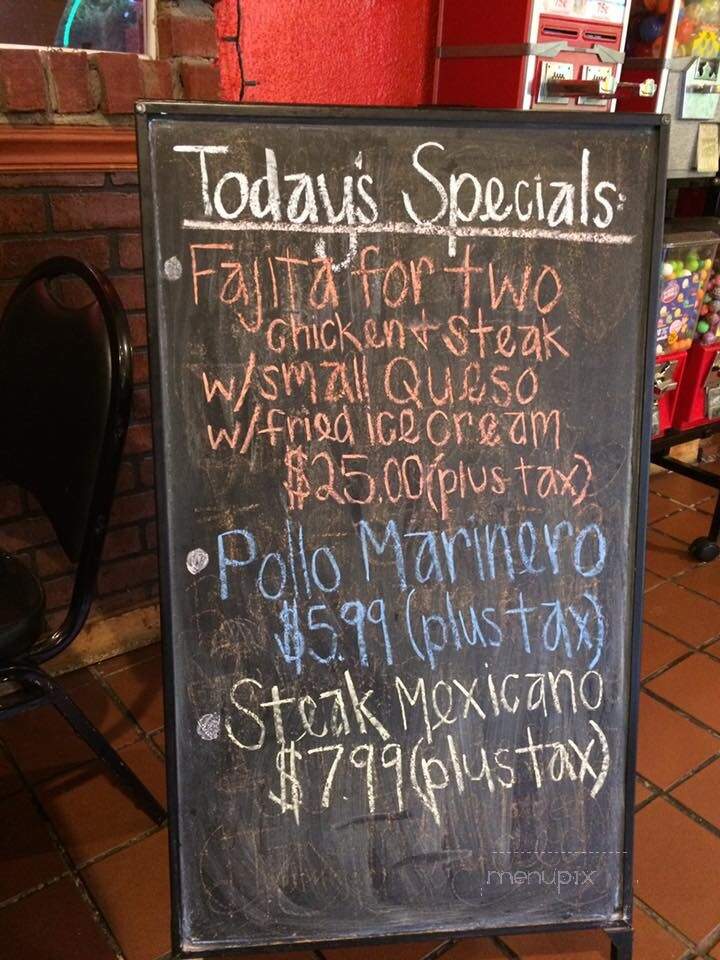 Today's Specials:
Fajita for two
chicken + steak
w/small Queso
w/fried ice cream
$25.00 (plus tax)
Pollo Marinero
$5.99 (plus tax)
Steak Mexicano
$7.99 (plus tax)
menupix